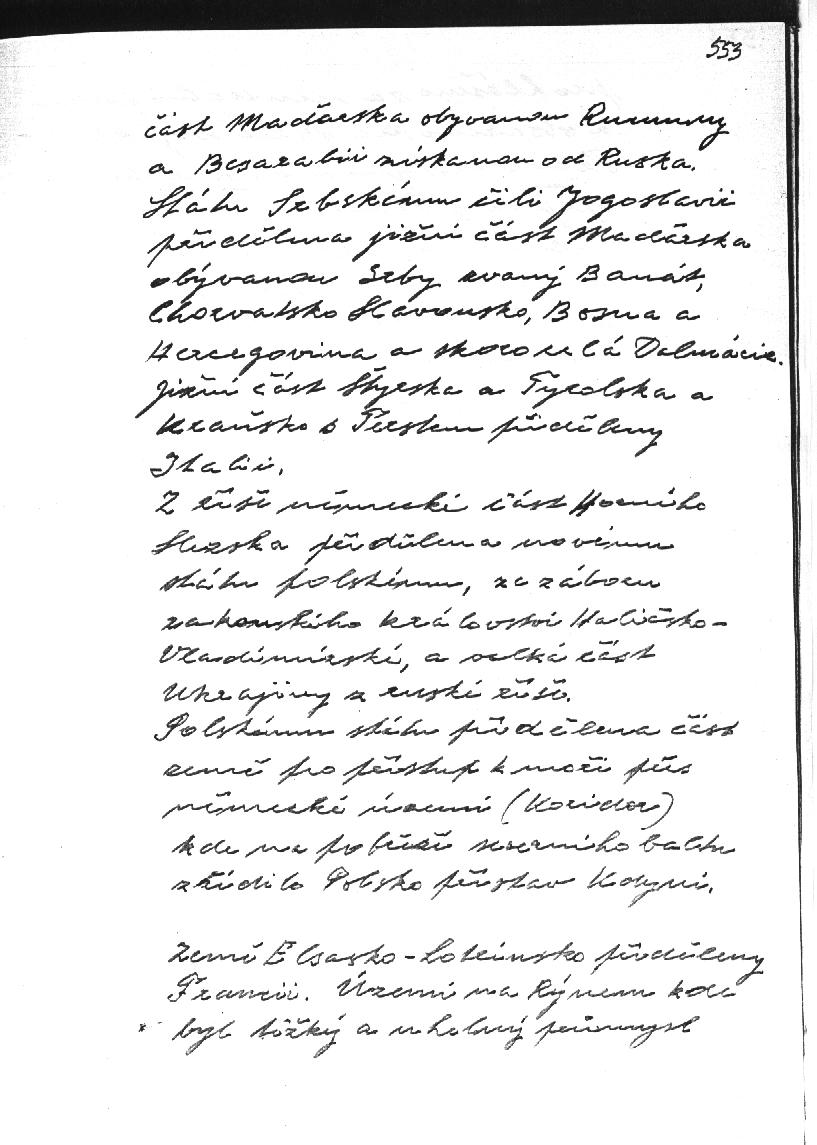 553
část Maďarska obývanou Rumuny
a Besarabii získanou od Ruska.
Státu Srbskému čili Jogoslavii
přidělena jižní část Maďarska
obývanou Srby zvaný Banát,
Chorvatsko Slavonsko, Bosna a
Hercegovina a skoro celá Dalmácie.
Jižní část Štyrska a Tyrolska a
Kraňsko s Terstem přiděleny
Italii.
Z říše německé část Horního
Slezska přidělena novému
státu polskému, ze záboru
rakouského království Haličsko-
Vladimírské, a velká část
Ukrajiny z ruské říše.
Polskému státu přidělena část
země pro přístup k moři přes
německé území (Koridor)
kde na pobřeží severního baltu
zřídilo Polsko přístav Kdyni.
Země Elsasko-Lotrinsko přiděleny
Francii. Území na Rýnem kde
byl těžký a uhelný průmysl